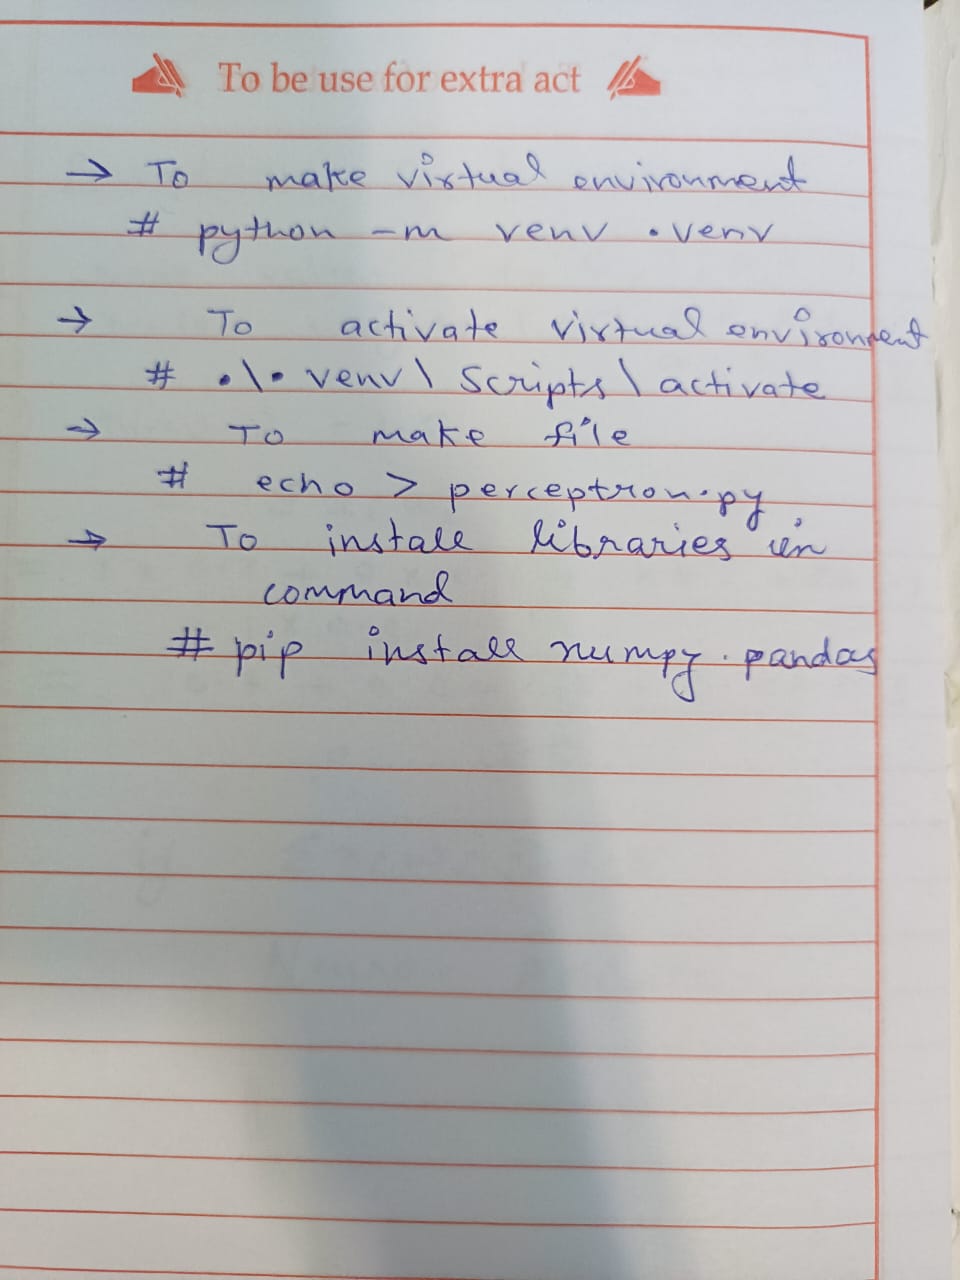 To be use for extra act
→ To make virtual environment
# python -m venv .venv
→ To activate virtual environment
# .\.venv\Scripts\activate
→ To make file
# echo > perceptron.py
→ To install libraries in
command
# pip install numpy. pandas